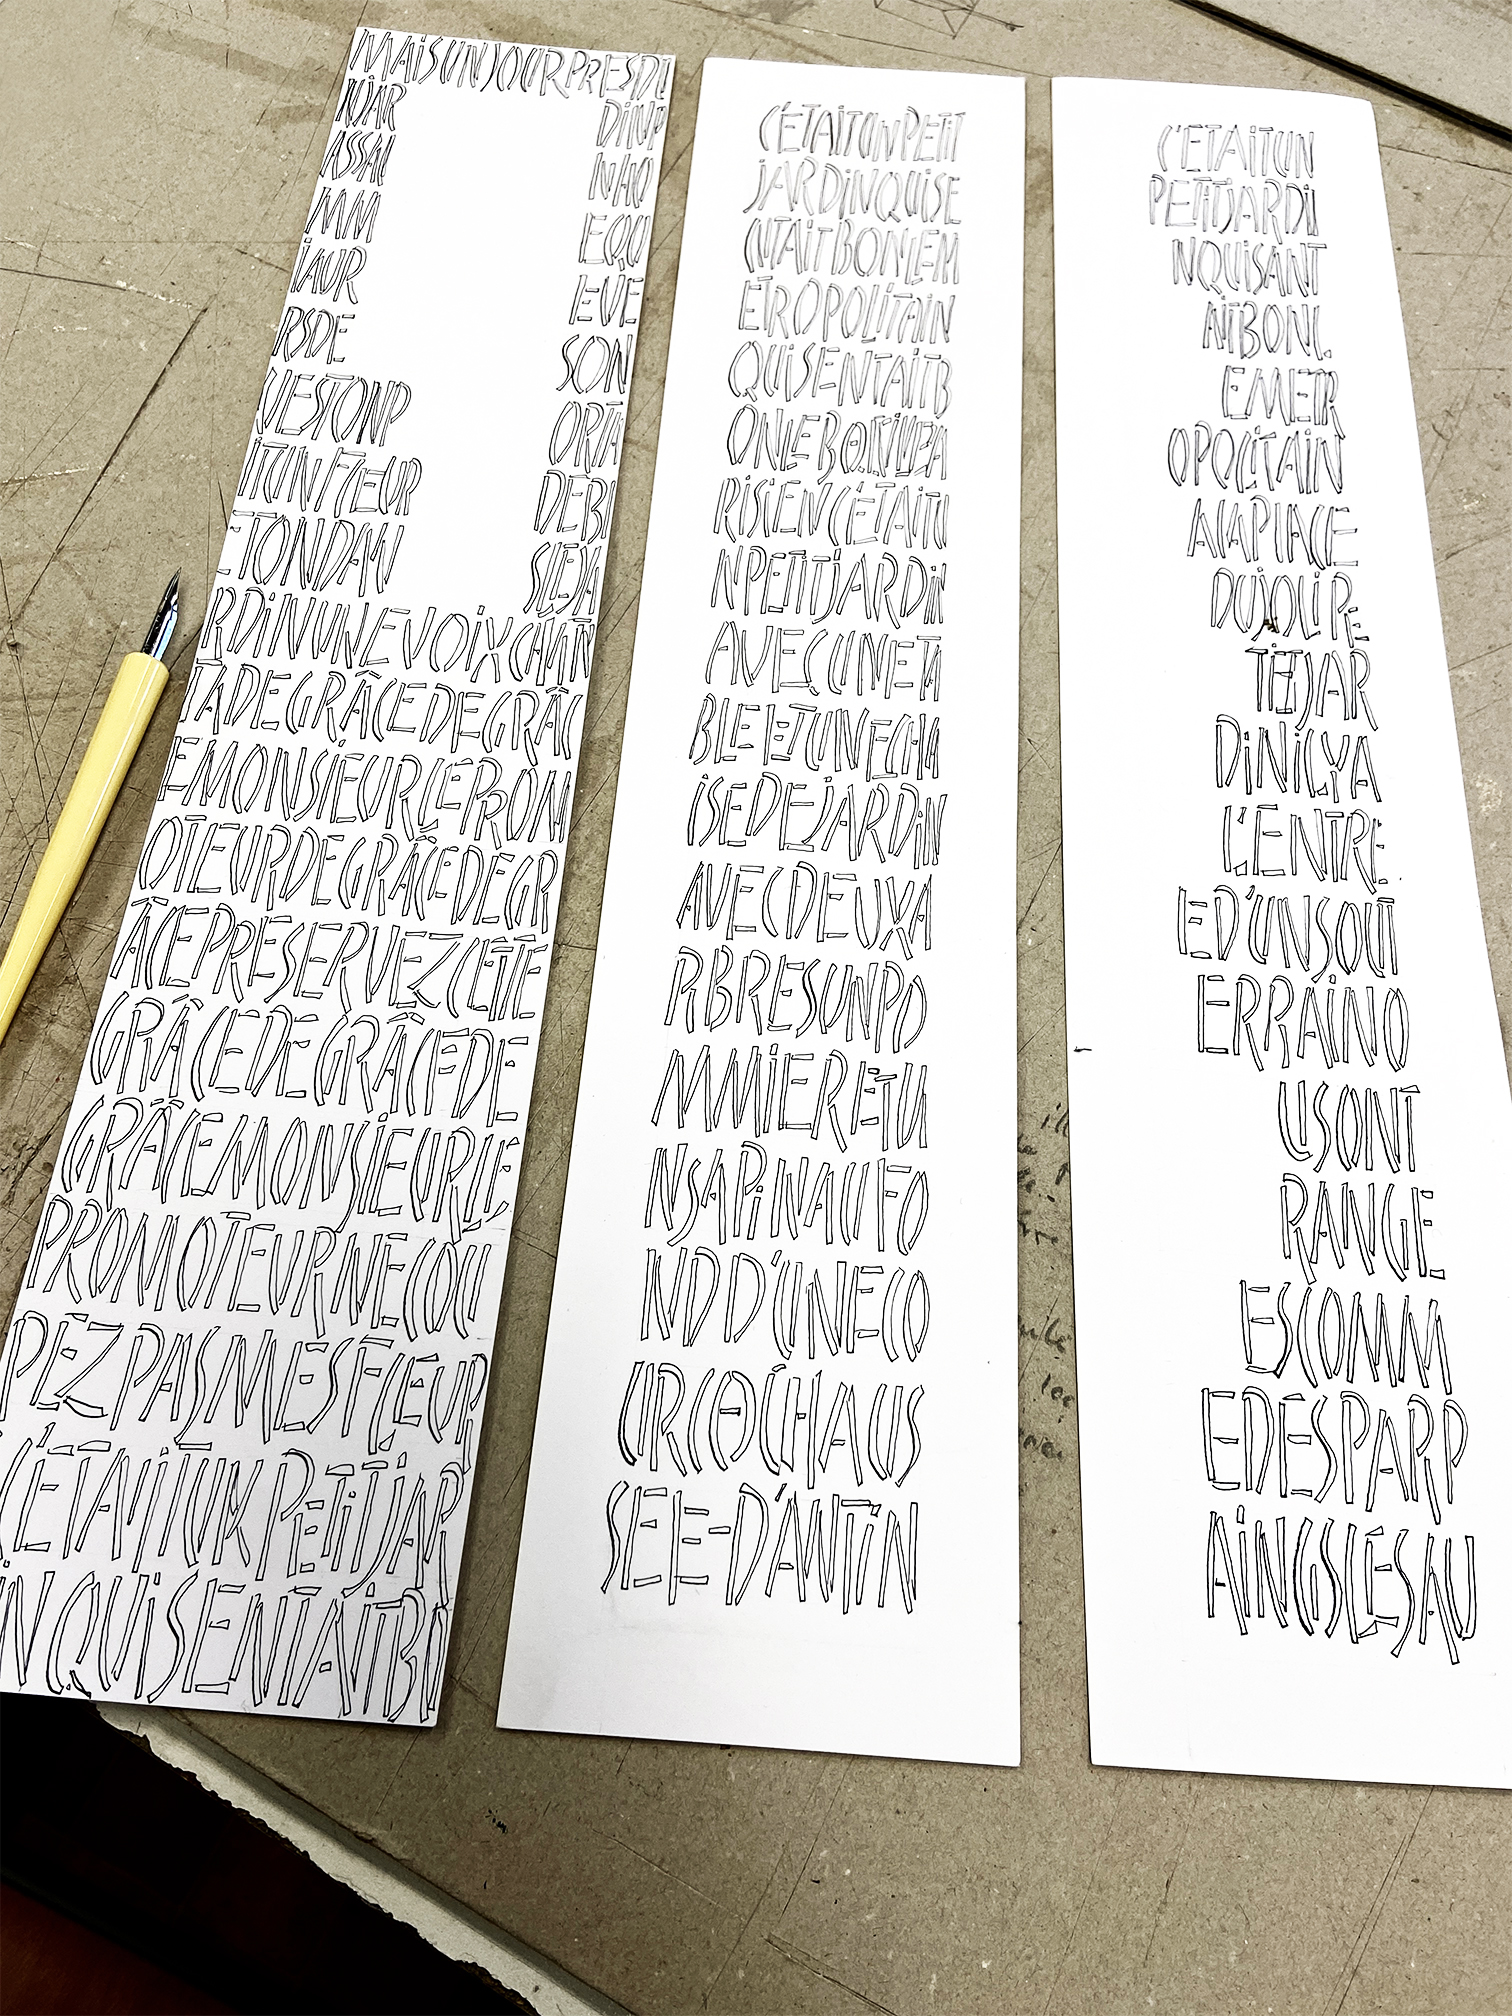 MAiSUNJOURPRESDU
NJAR DiNiP
ASSAi NHO
MM EQU
iAUR EVE
RSDE SON
VESTONP ORTA
iTUNFLEUR DEBI
ETONDANS SLEJA
RDiNUNEVOiXCHAN
TADEGRÂCEDEGRÂC
EMONSiEURLEPROM
OTEURDEGRÂCEDEGR
ÂCEPRESERVEZCETTE
GRÂCEDEGRÂCEDE
GRÂCEMONSiEURLE
PROMOTEURNECOU
PEZPASMESFLEUR
C'ÉTAiTUNPETiTJAR
iNQUiSENTAiTBO
C'ÉTAiTUNPETiT
JARDiNQUiSE
NTAiTBONLEM
ÉTROPOLiTAiN
QUiSENTAiTB
ONLEBASSiNPA
RiSiENC'ÉTAiTU
NPETiTJARDiN
AVECUNETA
BLEETUNECHA
iSEDEJARDiN
AVECDEUXA
RBRESUNPO
MMiERETU
NSAPiNAUFO
NDD'UNECO
URCOCHAUS
SEE-D'ANTiN
C'ÉTAiTUN
PETiTJARDi
NQUiSANT
AiTBONL
EMETR
OPOLiTAiN
ALAPLACE
DUJOLiPE
TiTJAR
DiNiLYA
L'ENTRE
ED'UNSOUT
ERRAiNO
USONT
RANGE
ESCOMM
EDESPARP
AiNGSLESAU